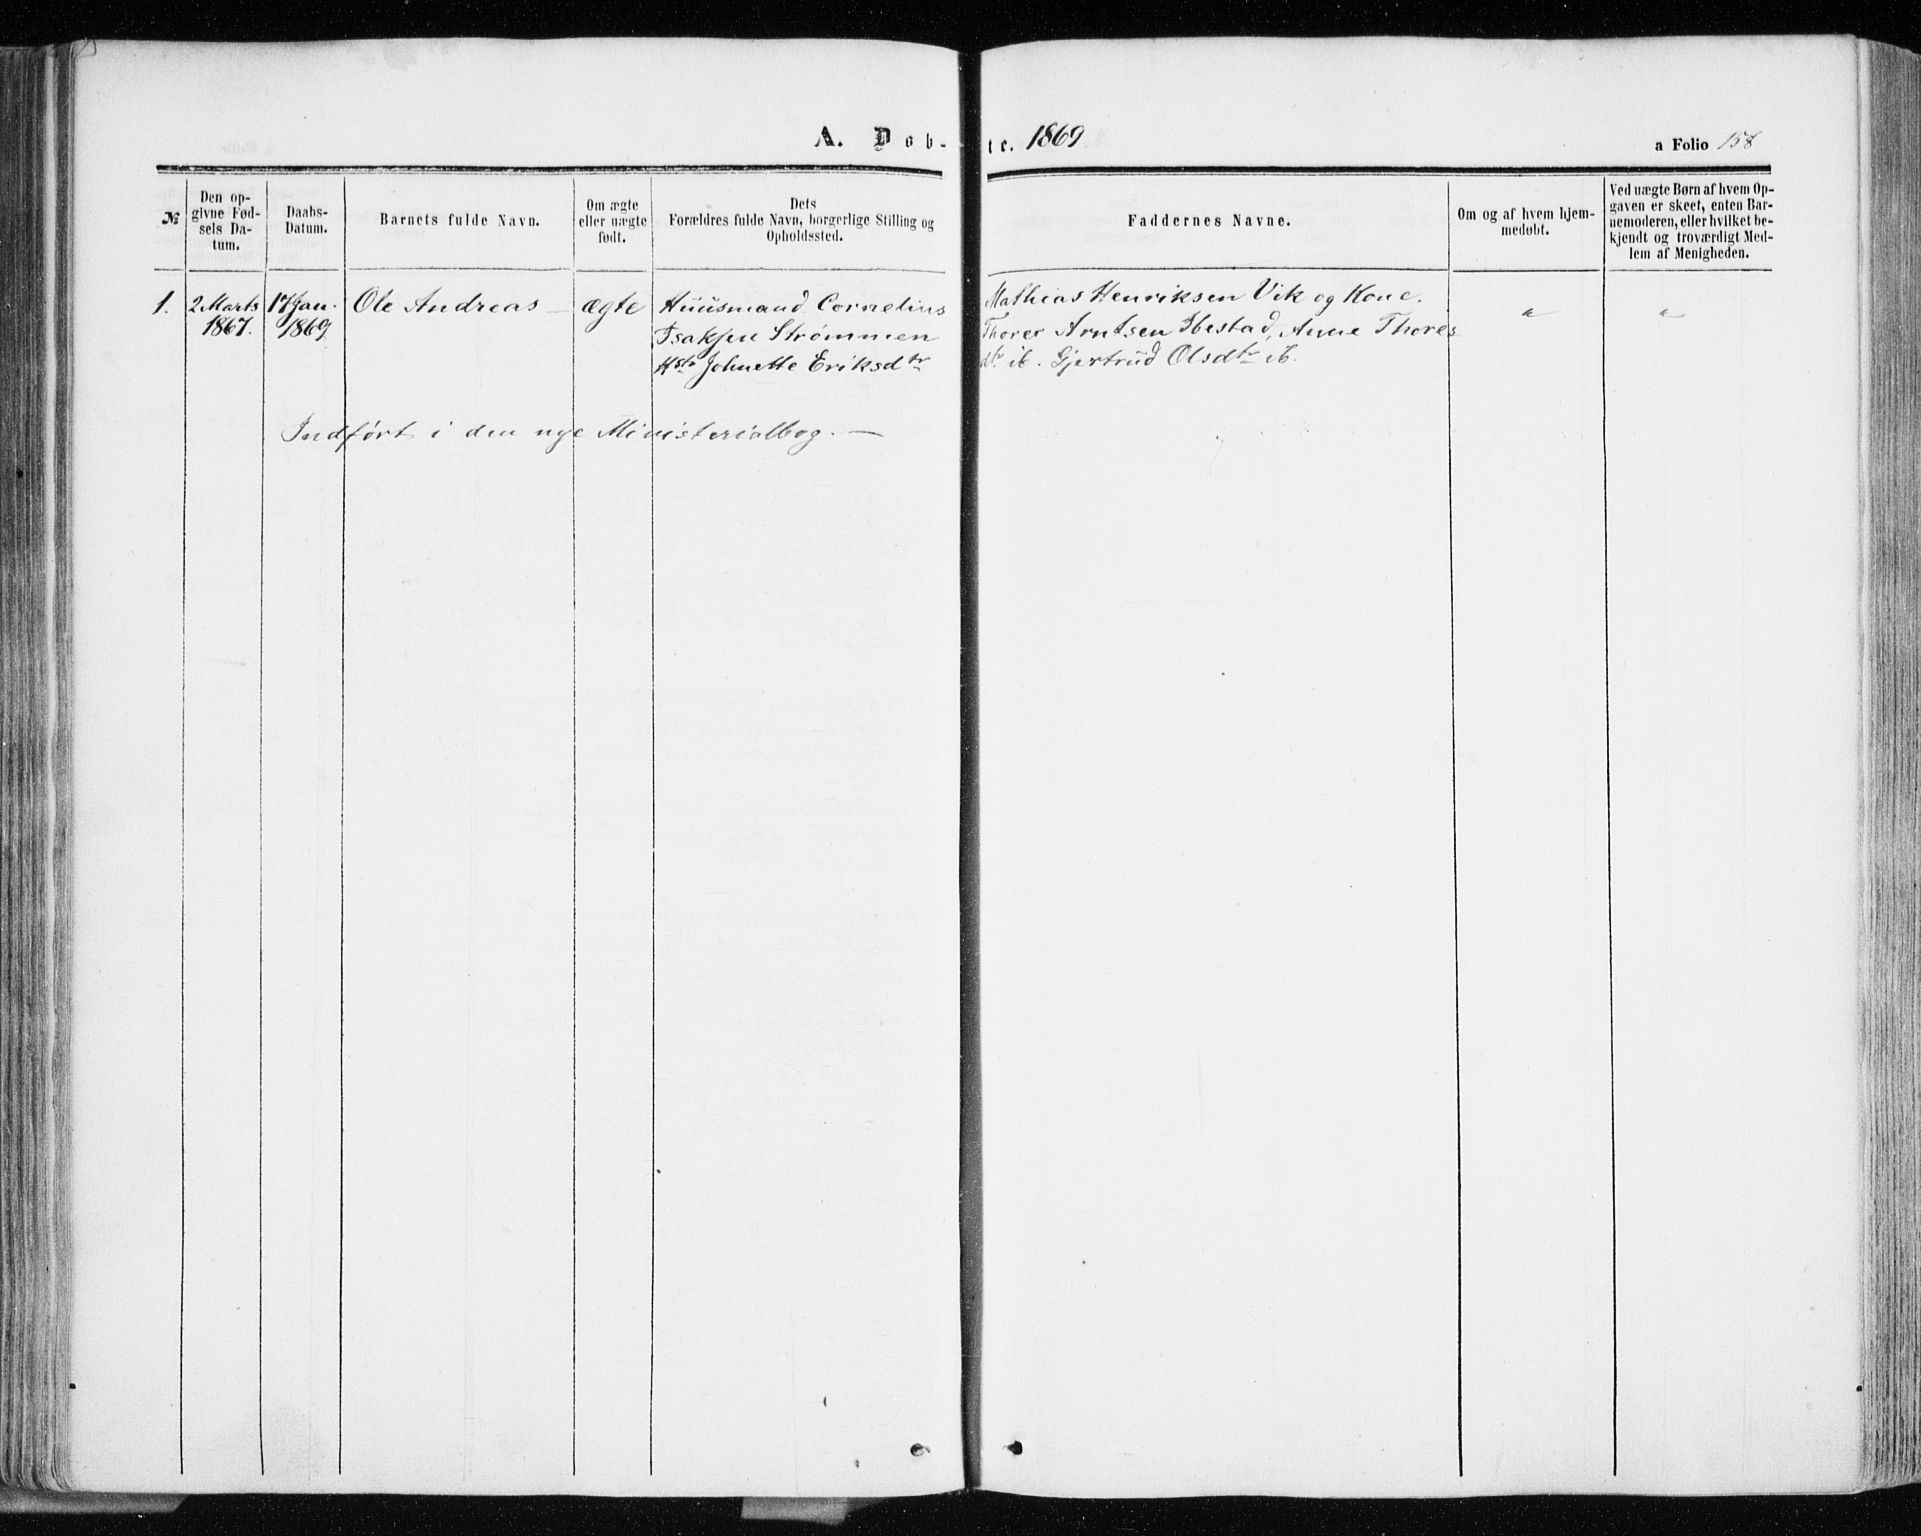 A. Døb-te. 1869
a Folio 158
№
Den op-
givne Fød-
sels Da-
tum.
Daabs-
Datum.
Barnets fulde Navn.
Om ægte
eller uægte
født.
Dets
Forældres fulde Navn, borgerlige Stilling og
Opholdssted.
Faddernes Navne.
Om og af hvem hjem-
medøbt.
Ved uægte Børn af hvem Op-
gaven er skeet, enten Bar-
nemoderen, eller hvilket be-
kjendt og troværdigt Med-
lem af Menigheden.
1.
2 Marts
1867.
17 Jan.
1869
Ole Andreas —
ægte
Huusmand Cornelius
Isaksen Strømmen
Hstr Johnette Eriksdtr
Mathias Henriksen Vik og Kone.
Thorer Arntsen Ibestad, Anne Thores
dtr ib. Gjertrud Olsdtr ib.
"
"
Indført i den nye Ministerialbog. —